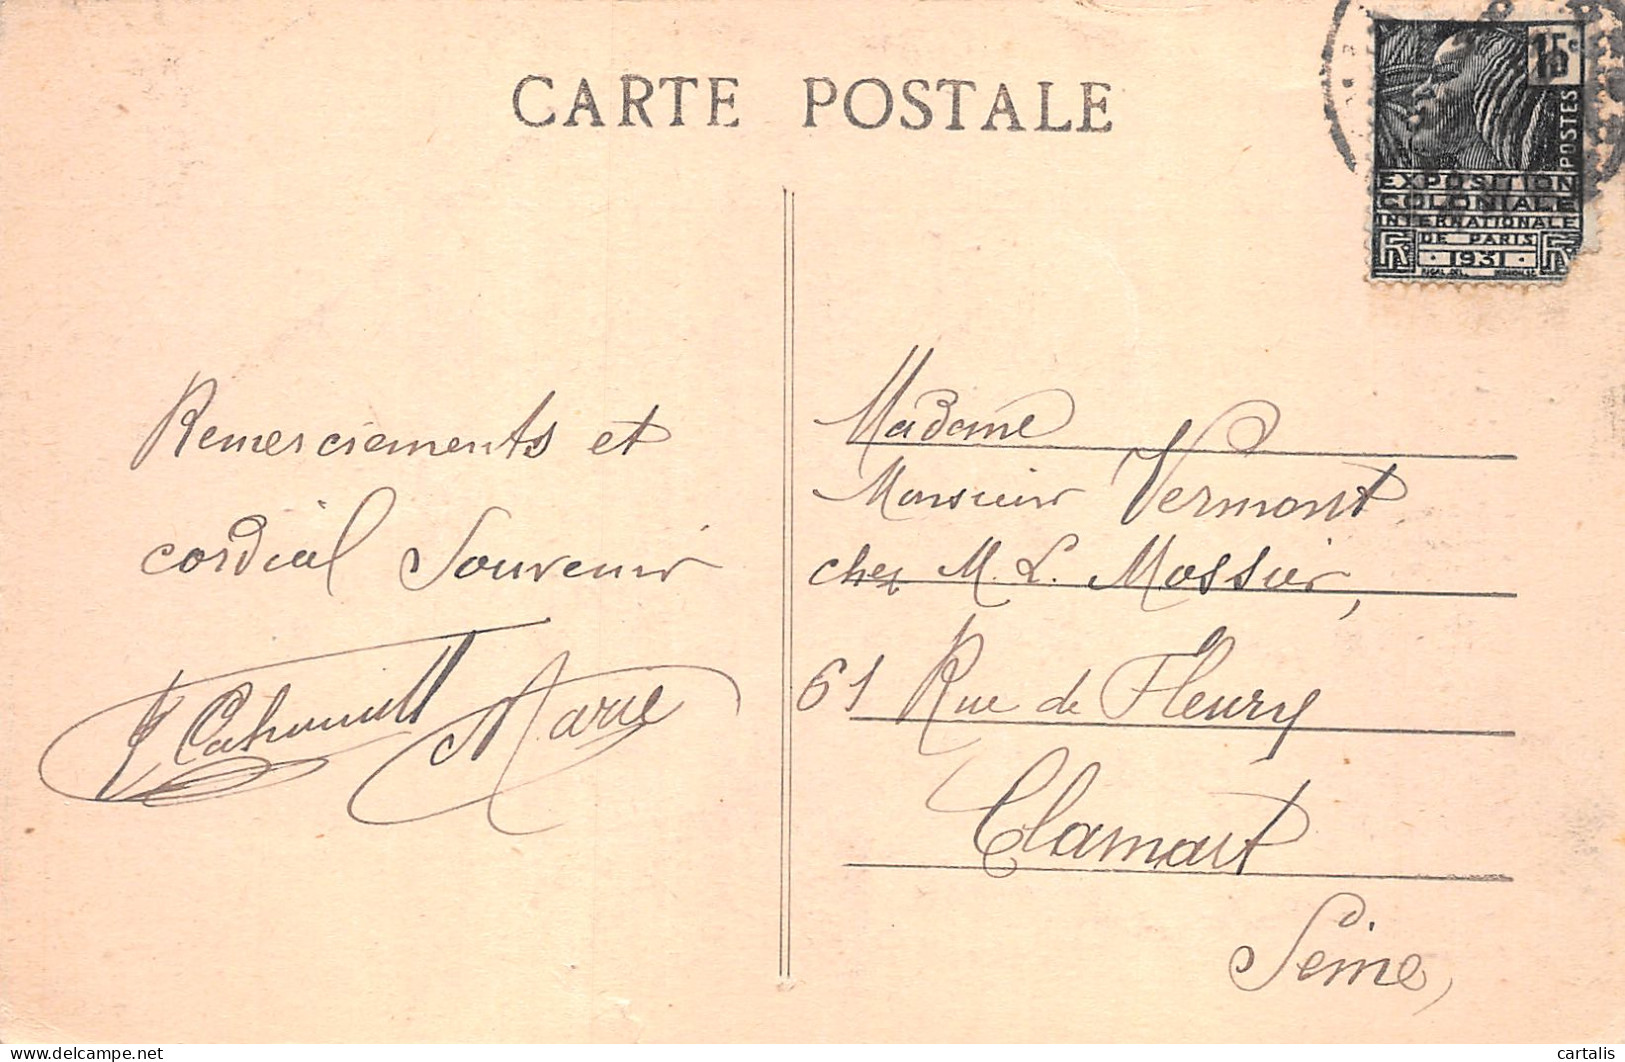 CARTE POSTALE
15c
POSTES
EXPOSITION
COLONIALE
INTERNATIONALE
DE PARIS
RF 1931 RF
Remerciements et
cordial Souvenir
Marie
Madame
Monsieur Vermont
chez M. L. Mossier,
61 Rue de Fleury
Clamart
Seine,
delcampe.net
cartalis